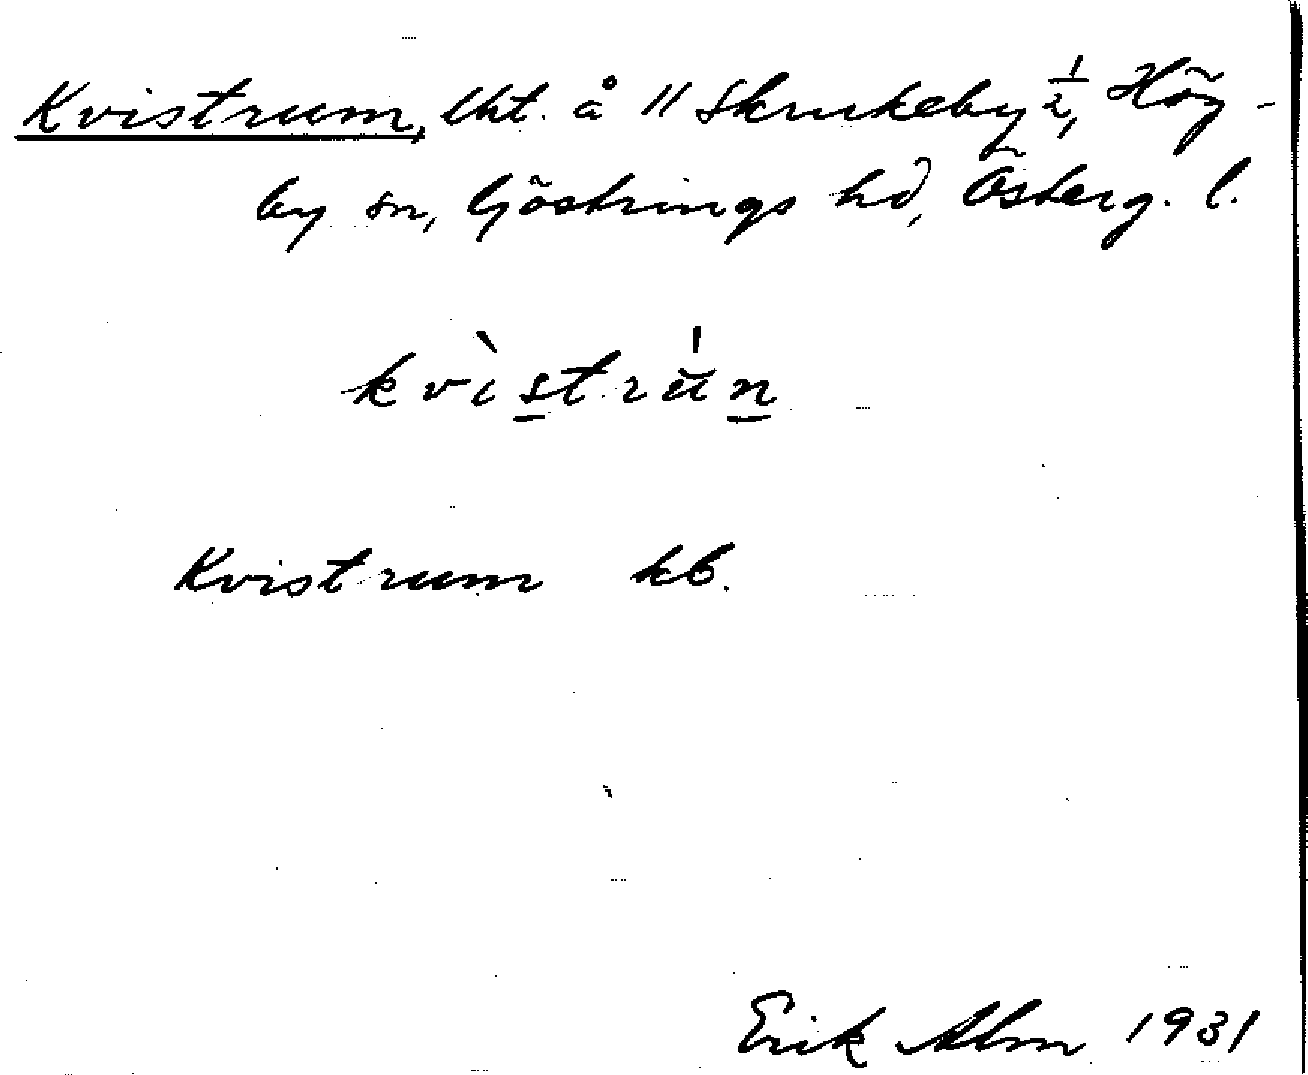 Kvistrum, lht. å // Skrukeby 1/2, Hög-
by sn, Göstrings hd, Österg. l.
kvìstrún
Kvistrum kb.
Erik Alm 1931